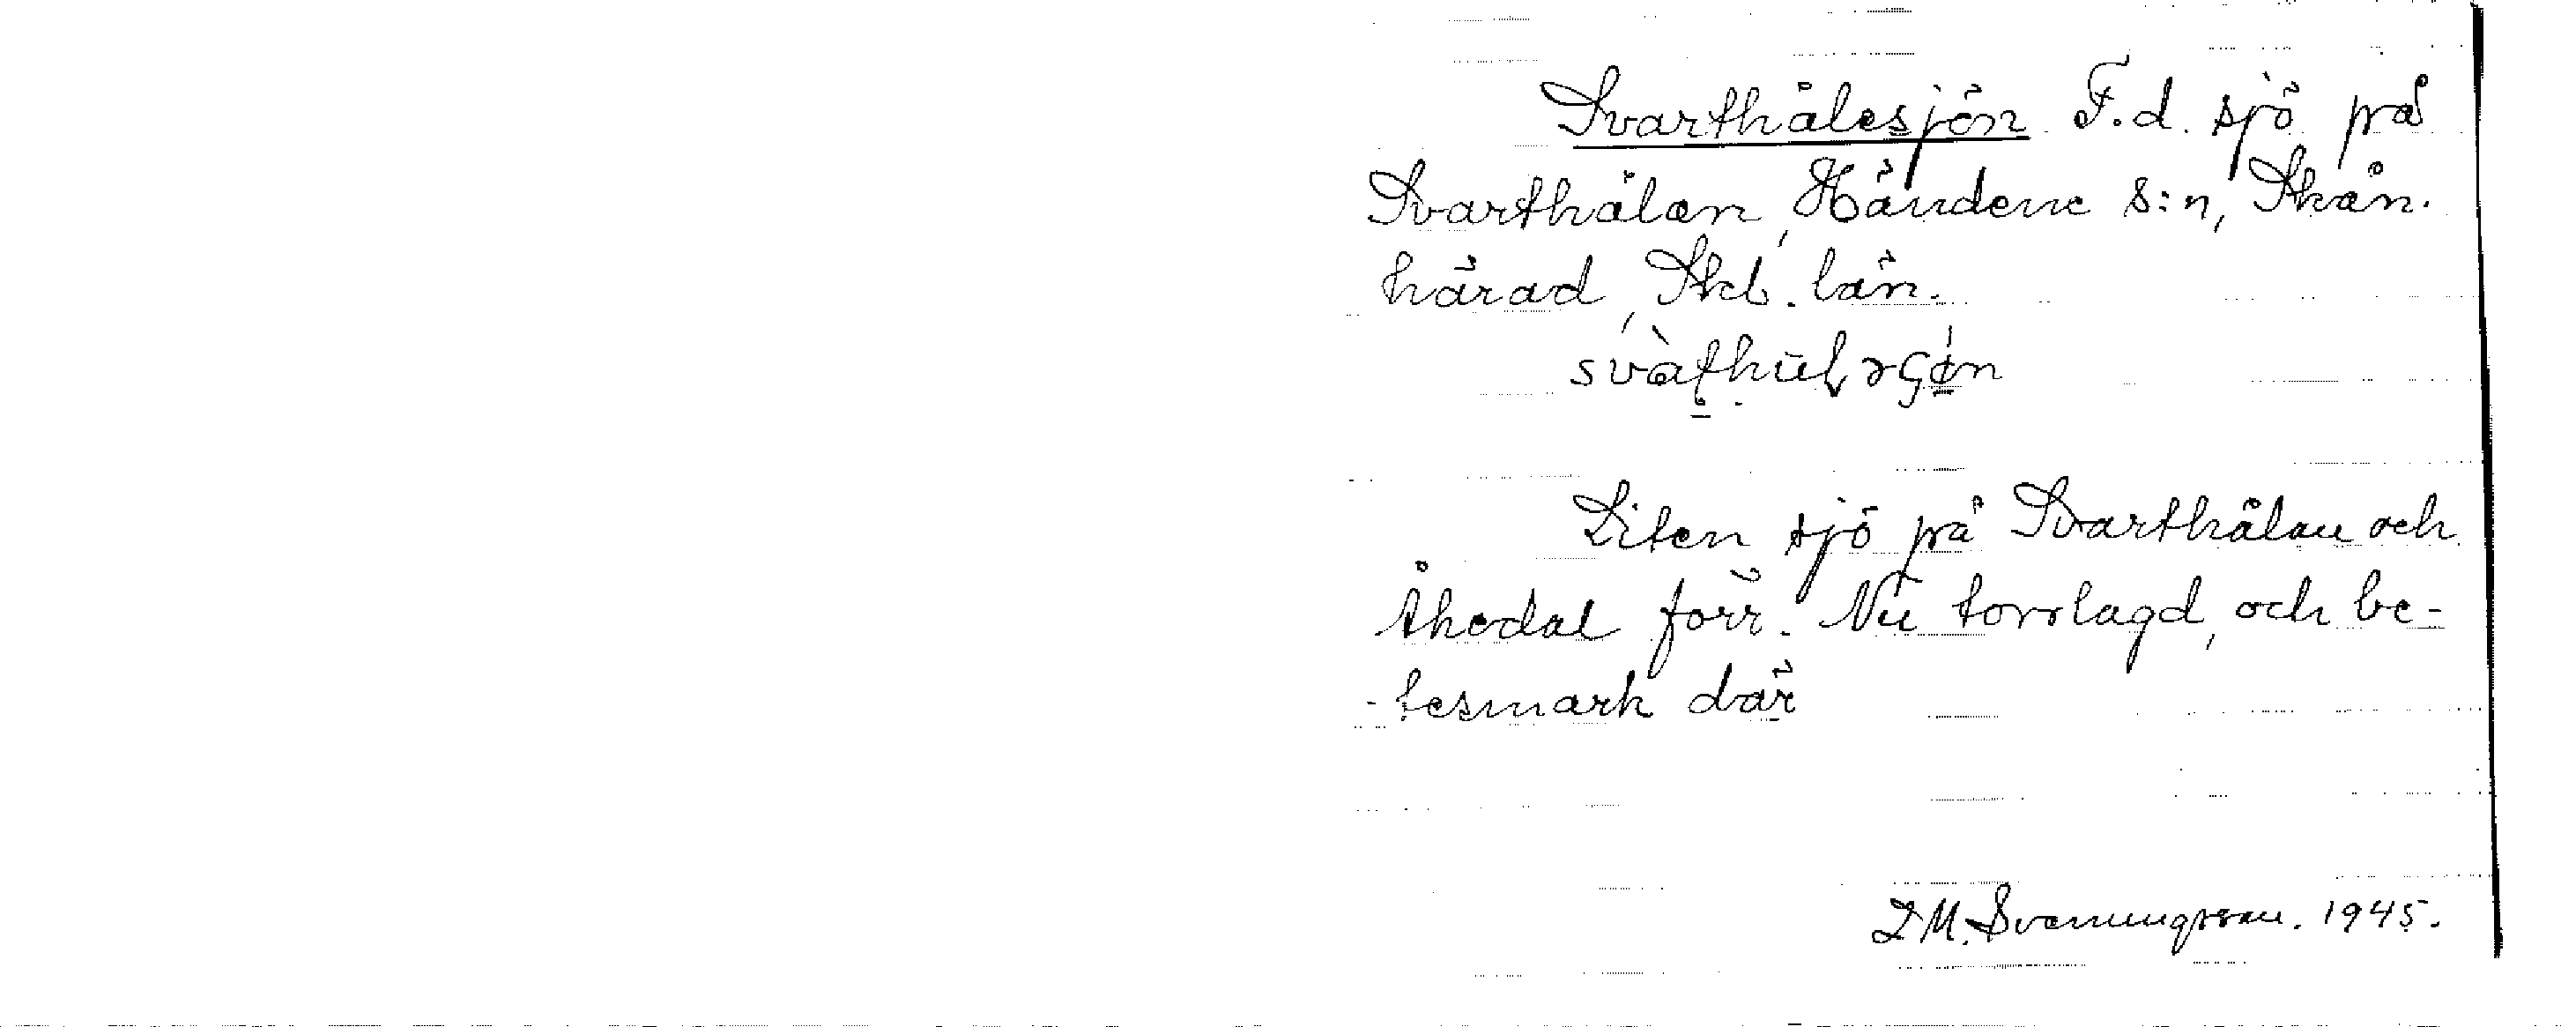 Svarthålesjön F.d. sjö på
Svarthålan, Händene s:n, Skån.
härad, Skb. län.
Liten sjö på Svarthålan och
Åkedal förr. Nu torrlagd, och be-
-tesmark där
L M. Svenungsson. 1945.